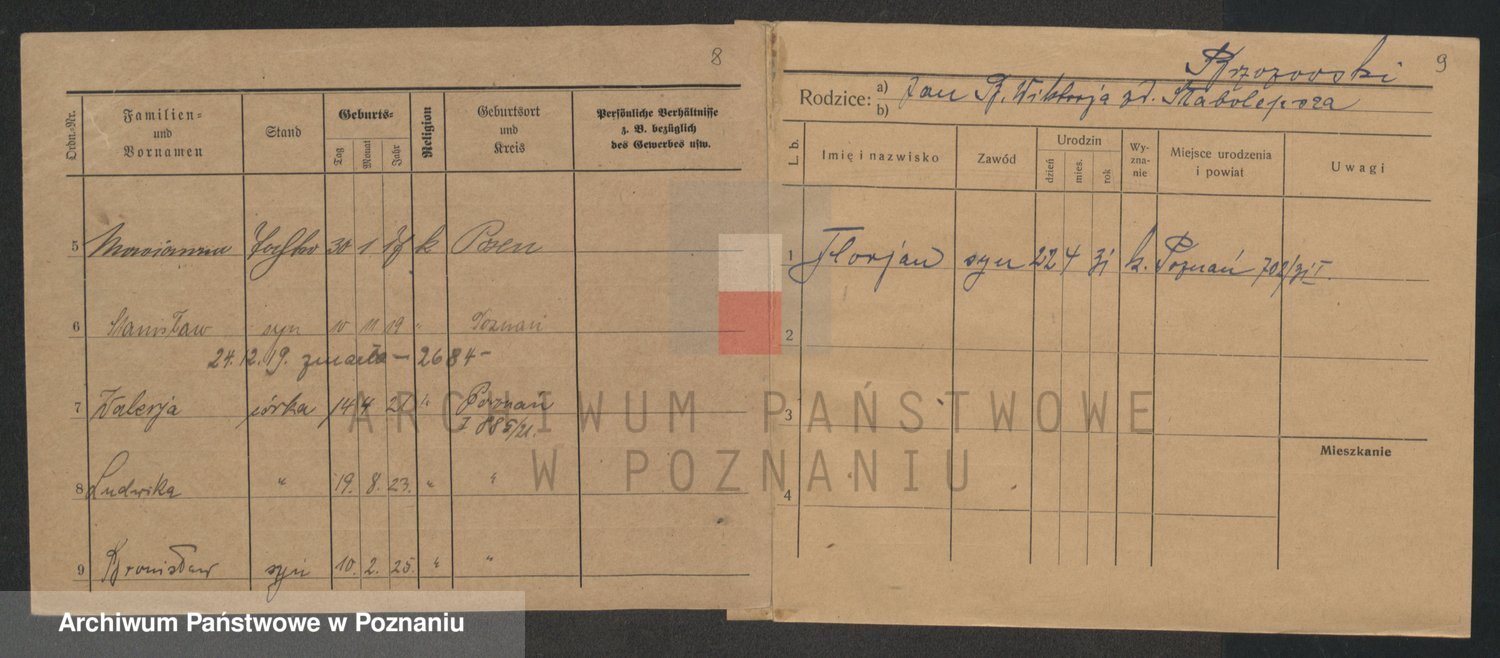 8
Ordn.-Nr.
Familien- und Vornamen
Stand
Geburts-
Tag Monat Jahr
Religion
Geburtsort und Kreis
Persönliche Verhältnisse z. B. bezüglich des Gewerbes usw.
5 30 1 k Posen
6 Stanisław syn 10 11 19 " Poznań
24.12.19. zmarła - 2684 -
7 Walerja córka 14 4 21 " Poznań
I 885/21.
8 Ludwika " 19. 8. 23. " "
9 Bronisław syn 10. 2. 25. " "
9
Brzozowski
Rodzice: a) Jan B. Wiktorja zd.
b)
L. b.
Imię i nazwisko
Zawód
Urodzin
dzień mies. rok
Wyznanie
Miejsce urodzenia i powiat
Uwagi
1 Florjan syn 22 4 31 k. Poznań 702/31 I.
2
3
Mieszkanie
4
ARCHIWUM PAŃSTWOWE
W POZNANIU
Archiwum Państwowe w Poznaniu